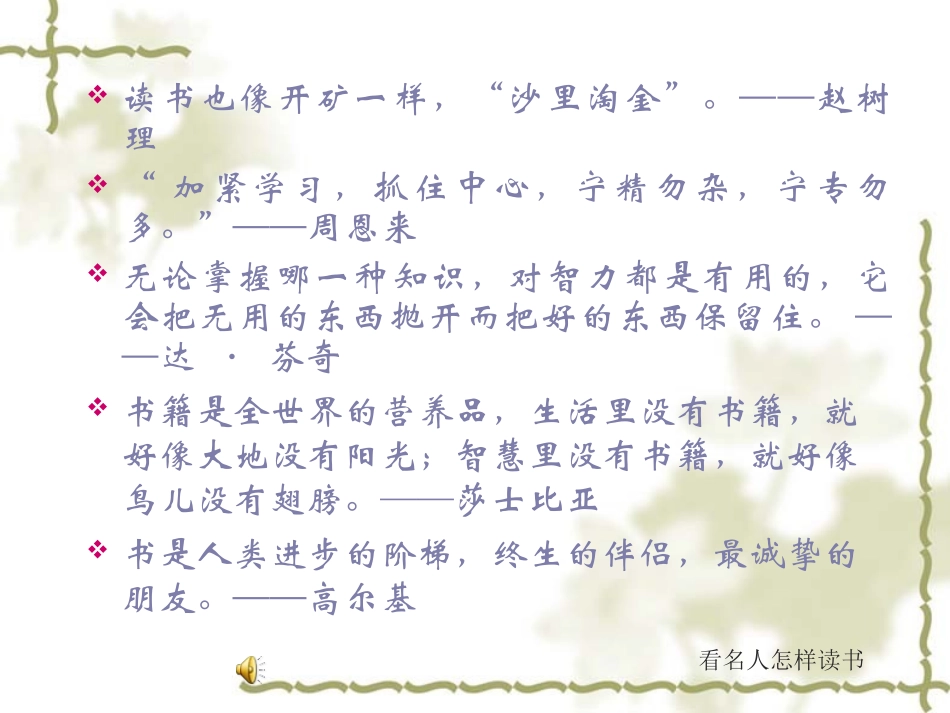 读书也像开矿一样，“沙里淘金”。——赵树
理
“ 加紧学习，抓住中心，宁精勿杂，宁专勿
多。”——周恩来
无论掌握哪一种知识，对智力都是有用的，它
会把无用的东西抛开而把好的东西保留住。 —
—达 · 芬奇
书籍是全世界的营养品，生活里没有书籍，就
好像大地没有阳光；智慧里没有书籍，就好像
鸟儿没有翅膀。——莎士比亚
书是人类进步的阶梯，终生的伴侣，最诚挚的
朋友。——高尔基
看名人怎样读书